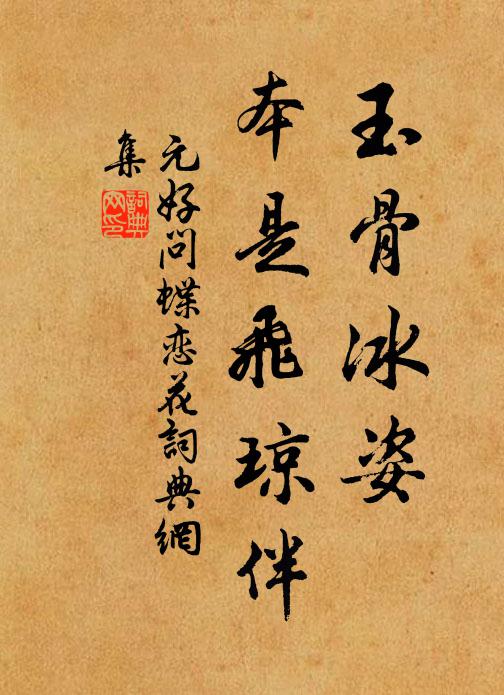 玉骨冰姿
本是飛琼伴
元好问蝶恋花詞典網
集
詞典
网印